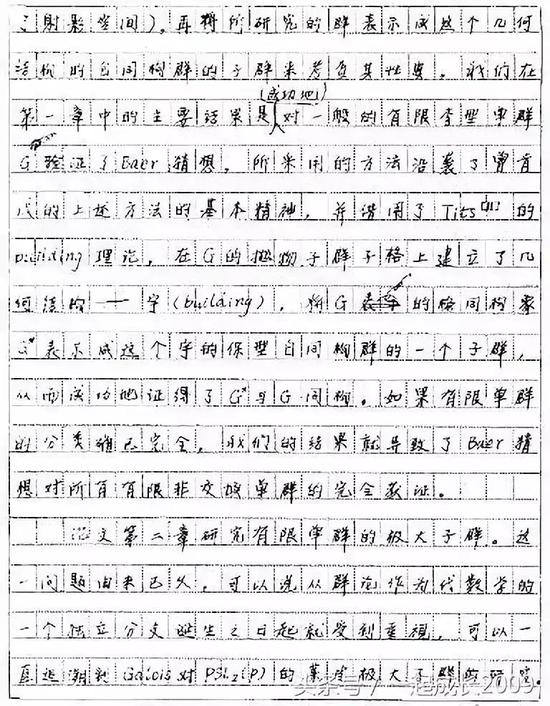 了射影空间),再将所研究的群表示成这个几何
结构的自同构群的子群来考查其性质。我们在
(成功地)
第一章中的主要结果是对一般的有限李型单群
G验证了Baer猜想。所采用的方法沿袭了曾肯
成的上述方法的基本精神,并借用了Tits的
building理论,在G的抛物子群子格上建立了几
何结构——宇(building),将G的格同构象
G*表示成这个宇的保型自同构群的一个子群,
从而成功地证得了G*与G同构。如果有限单群
的分类确已完全,我们的结果就导致了Baer猜
想对所有有限非交换单群的完全获证。
论文第二章研究有限单群的极大子群。这
一问题由来已久,可以说从群论作为代数学的
一个独立分支诞生之日起就受到重视,可以一
直追溯到Galois对PSL2(P)的某些极大子群的研究。
头条号/一起成长2009